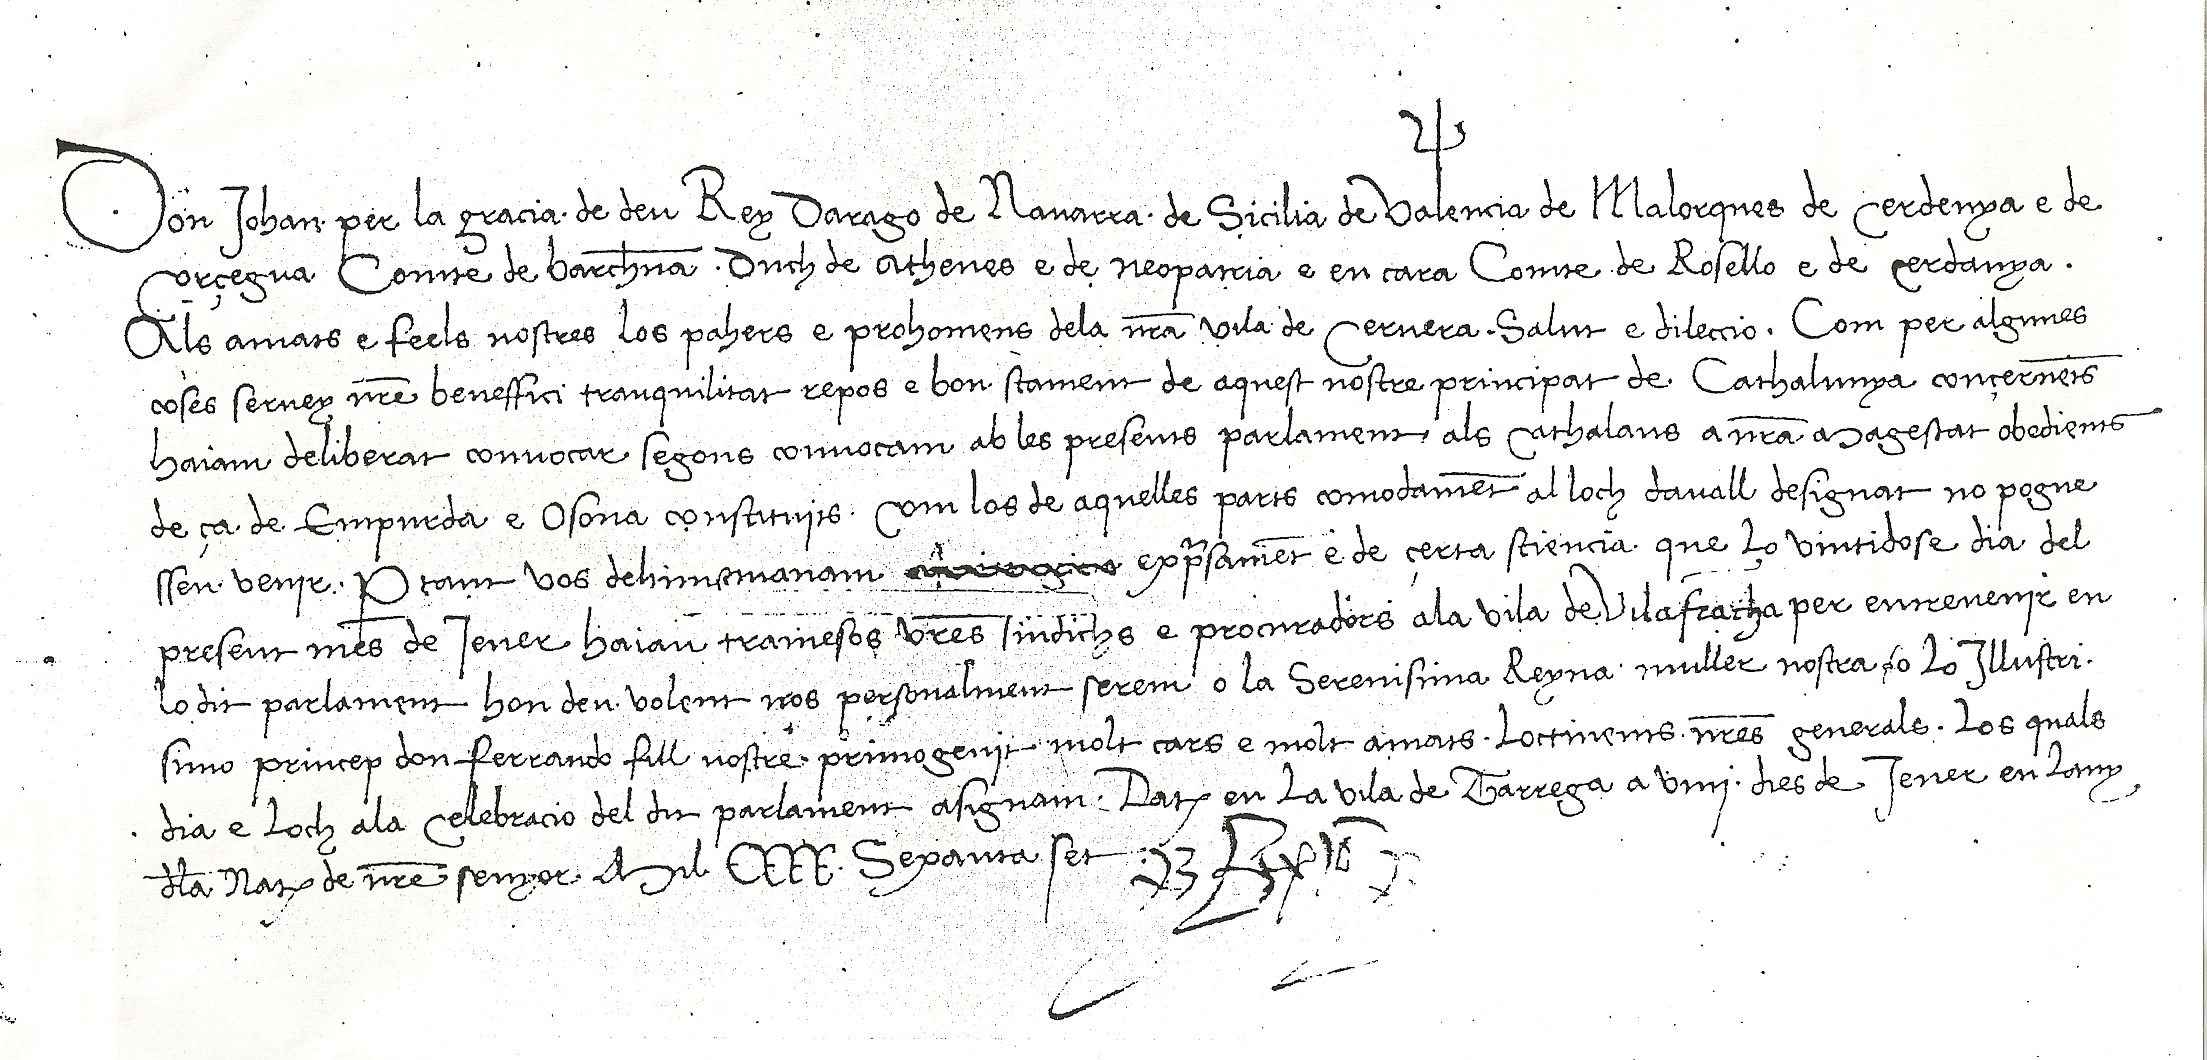 Don Johan per la gracia de deu Rey Darago de Navarra de Sicilia de Valencia de Malorques de Cerdenya e de
Corçegua Comte de barchna. Duch de Athenes e de neopatria e en cara Comte de Rosello e de cerdanya.
Als amats e feels nostres los pahers e prohomens dela nra vila de Cervera. Salut e dileccio. Com per algunes
coses servey nre beneffici tranquilitat repos e bon stament de aquest nostre principat de Cathalunya conçernets
haiam deliberat convocar segons convocam ab les presents parlament als Cathalans a nra Magestat obedients
de ça de Empurda e Osona constituits. Com los de aquelles parts comodamet al loch davall designat no pogue
ssen venir. P tant vos dehim e manam exprsamet e de çerta sciencia que Lo vintidose dia del
present mes de Jener haiau tramesos vres sindichs e procuradors ala vila de Vilafracha per entrevenir en
lo dit parlament hon deu volent nos personalment serem o la Serenisima Reyna muller nostra o Lo Illustri.
simo princep don ferrando fill nostre primogenit molt cars e molt amats. Loctinents nres generals. Los quals
dia e Loch ala Celebracio del dit parlament asignam. Dat en La vila de Tarrega a viiij dies de Jener en Lany
dla Nat de nre senyor Mil CCCC. Sexanta set